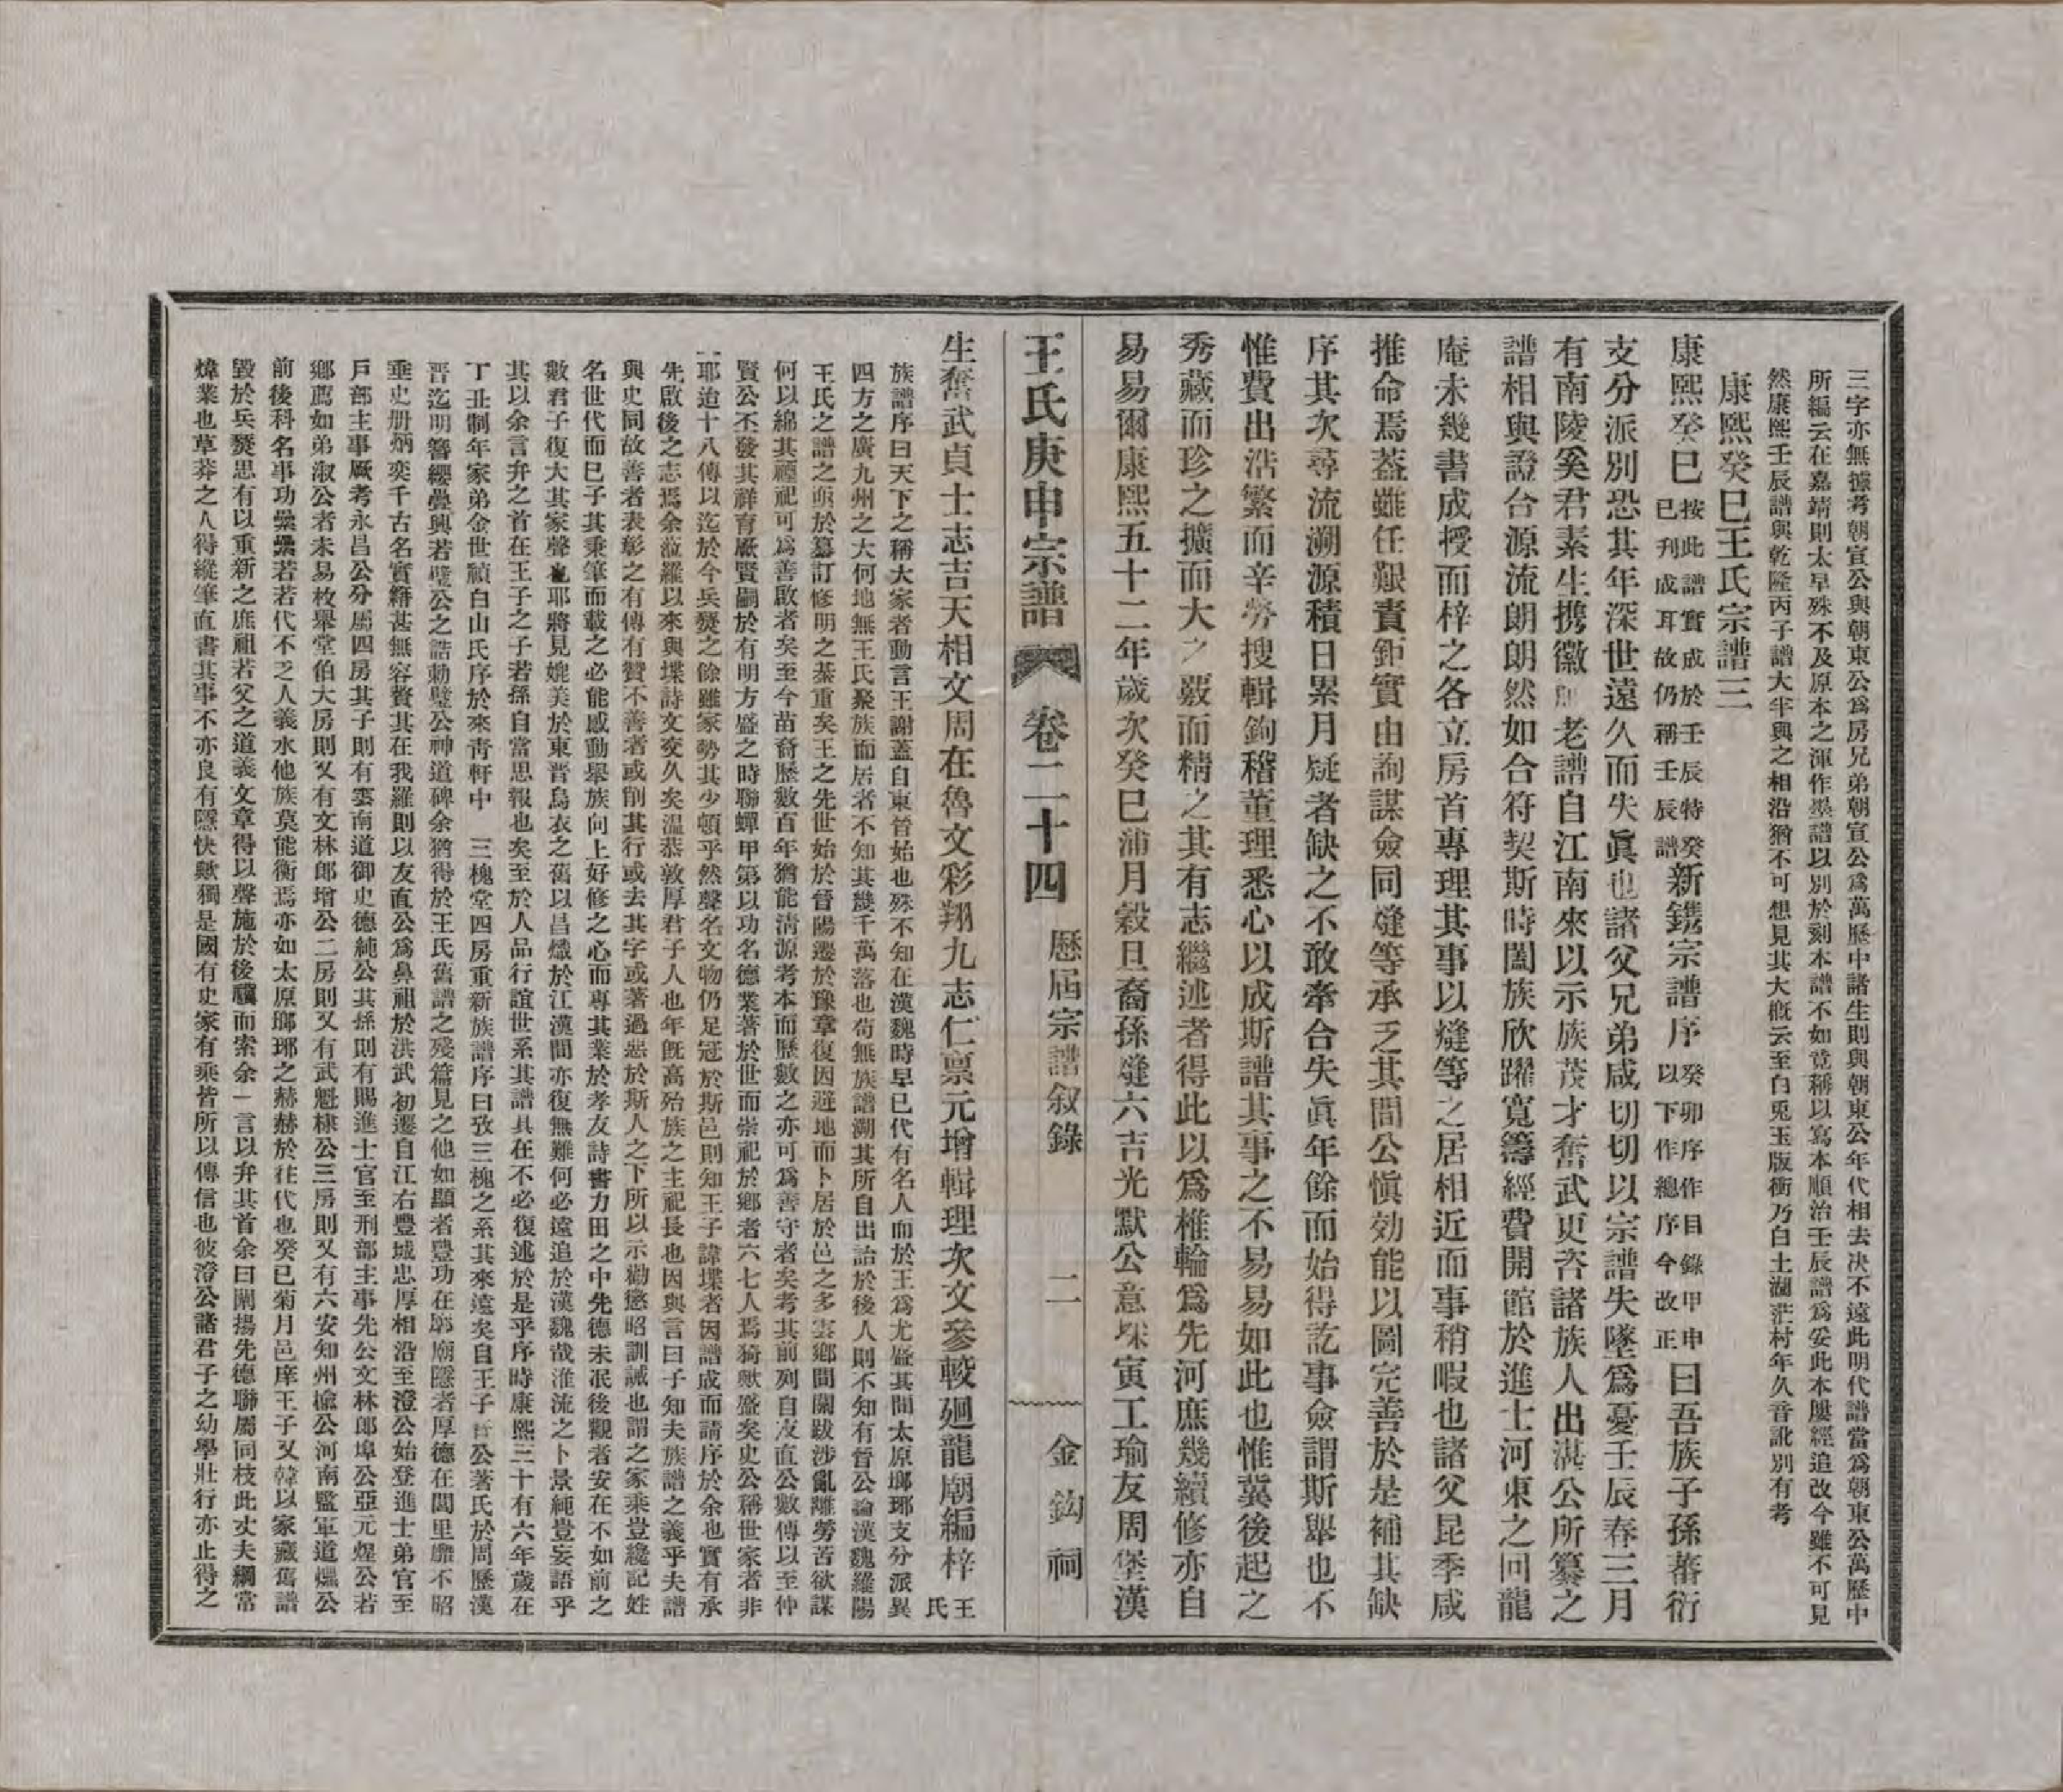 三字亦無據考朝宣公與朝東公爲房兄弟朝宣公爲萬歷中諸生則與朝東公年代相去决不遠此明代譜當爲朝東公萬歷中
所編云在嘉靖則太早殊不及原本之渾作墨譜以別於刻本譜不如竟稱以寫本順治壬辰譜爲妥此本屢經追改今雖不可見
然康熙壬辰譜與乾隆丙子譜大半與之相沿猶不可想見其大槪云至白兎玉版衝乃白土澗茫村年久音訛別有考
康熙癸巳王氏宗譜三
康熙癸巳
按此譜實成於壬辰特癸
已刊成耳故仍稱壬辰譜
新鐫宗譜序
癸卯序作目錄甲申
以下作總序今改正
曰吾族子孫蕃衍
支分派別恐其年深世遠久而失眞也諸父兄弟咸切切以宗譜失墜爲憂壬辰春三月
有南陵奚君素生携徽 老譜自江南來以示族茂才奮武更咨諸族人出淇公所纂之
譜相與證合源流朗朗然如合符契斯時闔族欣躍寬籌經費開館於進士河東之回龍
庵未幾書成授而梓之各立房首專理其事以熢等之居相近而事稍暇也諸父昆季咸
推命焉葢雖任艱責鉅實由詢謀僉同熢等承乏其間公愼効能以圖完善於是補其缺
序其次尋流溯源積日累月疑者缺之不敢牽合失眞年餘而始得訖事僉謂斯舉也不
惟費出浩繁而辛勞搜輯鉤稽董理悉心以成斯譜其事之不易易如此也惟冀後起之
秀藏而珍之擴而大之覈而精之其有志繼述者得此以爲椎輪爲先河庶幾續修亦自
易易爾康熙五十二年歲次癸巳浦月穀旦裔孫熢六吉光默公意埰寅工瑜友周堡漢
王氏庚申宗譜 卷二十四 歷屆宗譜叙錄 二 金鈎祠
生奮武貞士志吉天相文周在魯文彩翔九志仁禀元增輯理次文參較廻龍廟編梓
王
氏
族譜序曰天下之稱大家者動言王謝蓋自東晉始也殊不知在漢魏時早已代有名人而於王爲尤盛其間太原瑯琊支分派異
四方之廣九州之大何地無王氏聚族而居者不知其幾千萬落也苟無族譜溯其所自出詒於後人則不知有晉公論漢魏羅陽
王氏之譜之 於纂訂修明之綦重矣王之先世始於晉陽遷於豫章復因避地而卜居於邑之多雲鄉間關跋涉亂離勞苦欲謀
何以綿其禋祀可爲善啟者矣至今苗裔歷數百年猶能淸源考本而歷數之亦可爲善守者矣考其前列自友直公數傳以至仲
賢公丕發其祥育厥賢嗣於有明方盛之時聯蟬甲第以功名德業著於世而崇祀於鄉者六七人焉猗歟盛矣史公稱世家者非
耶迨十八傳以迄於今兵燹之餘雖家勢其少頓乎然聲名文物仍足冠於斯邑則知王子諱堞者因譜成而請序於余也實有承
先啟後之志焉余蒞羅以來與堞詩文交久矣溫恭敦厚君子人也年旣高殆族之主祀長也因與言曰子知夫族譜之義乎夫譜
與史同故善者表彰之有傳有贊不善者或削其行或去其字或著過惡於斯人之下所以示勸懲昭訓誡也謂之家乘豈纔記姓
名世代而已子其秉筆而載之必能感動舉族向上好修之心而專其業於孝友詩書力田之中先德未泯後觀者安在不如前之
數君子復大其家聲也耶將見媲美於東晉烏衣之舊以昌熾於江漢間亦復無難何必遠追於漢魏哉淮流之卜景純豈妄語乎
其以余言弁之首在王子之子若孫自當思報也矣至於人品行誼世系其譜具在不必復述於是乎序時康熙三十有六年歲在
丁丑制年家弟金世禎白山氏序於來靑軒中 三槐堂四房重新族譜序曰攷三槐之系其來遠矣自王子晉公著氏於周歷漢
晉迄明簪纓疊興若璧公之誥勅璧公神道碑余猶得於王氏舊譜之殘篇見之他如顯者豐功在郊廟隱者厚德在閭里靡不昭
垂史册炳奕千古名實籍甚無容贅其在我羅則以友直公爲鼻祖於洪武初遷自江右豐城忠厚相沿至澄公始登進士弟官至
戶部主事厥考永昌公分屬四房其子則有雲南道御史德純公其孫則有賜進士官至刑部主事先公文林郎埠公亞元煋公若
鄉薦如弟淑公者未易枚舉堂伯大房則又有文林郎增公二房則又有武魁棣公三房則又有六安知州楡公河南監軍道爌公
前後科名事功纍纍若若代不乏人義水他族莫能衡焉亦如太原瑯琊之赫赫於往代也癸巳菊月邑庠王子又韓以家藏舊譜
毀於兵燹思有以重新之庶祖若父之道義文章得以聲施於後禩而索余一言以弁其首余曰闡揚先德聯屬同枝此丈夫綱常
煒業也草莽之人得縱筆直書其事不亦良有隱快歟獨是國有史家有乘皆所以傳信也彼澄公諸君子之幼學壯行亦止得之